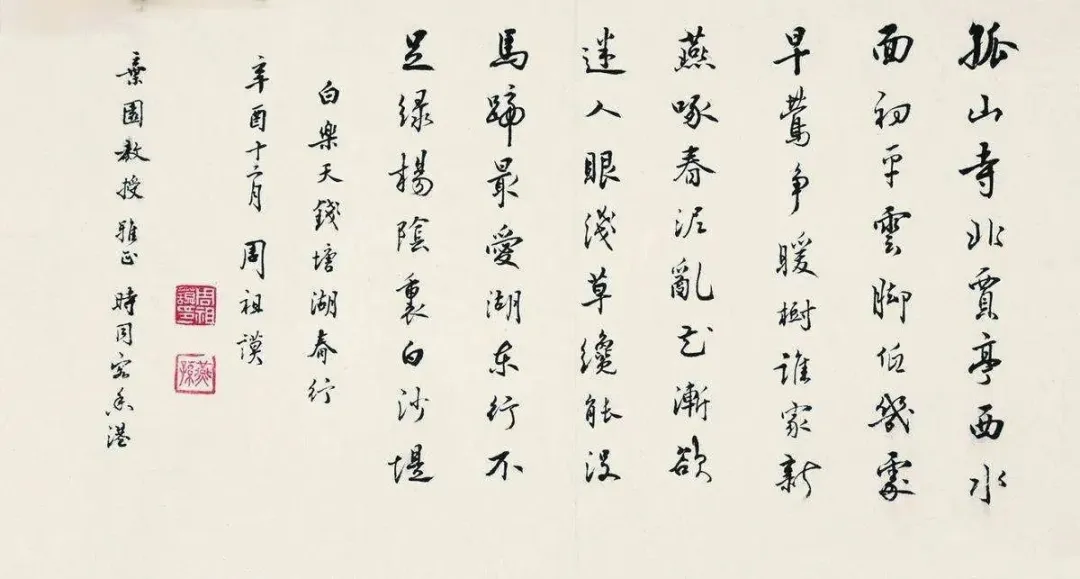 孤山寺北賈亭西水
面初平雲脚低幾處
早鶯争暖樹誰家新
燕啄春泥亂花漸欲
迷人眼淺草纔能没
馬蹄最愛湖東行不
足緑楊陰裏白沙堤
白樂天錢塘湖春行
辛酉十二月 周祖謨
周祖謨印
燕孫
園教授雅正 時同客香港